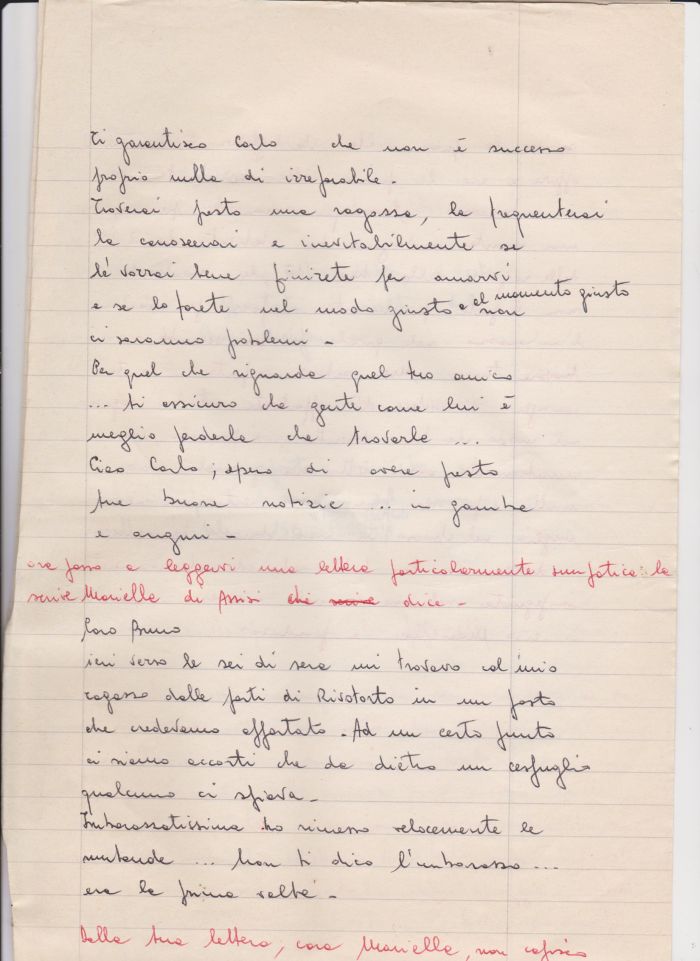 Ti garantisco Carlo che non è successo
proprio nulla di irreparabile.
Troverai presto una ragazza, la frequenterai
la conoscerai e inevitabilmente se
le vorrai bene finirete per amarvi
e se lo farete nel modo giusto e al momento giusto non
ci saranno problemi -
Per quel che riguarda quel tuo amico
... ti assicuro che gente come lui è
meglio perderla che trovarla ...
Ciao Carlo; spero di avere presto
tue buone notizie ... in gamba
e auguri -
ora passo a leggervi una lettera particolarmente simpatica: la
scrive Mariella di Assisi che scrive dice -
Caro Bruno
ieri verso le sei di sera mi trovavo col mio
ragazzo dalle parti di Rivotorto in un posto
che credevamo appartato. Ad un certo punto
ci siamo accorti che da dietro un cespuglio
qualcuno ci spiava -
Imbarazzatissima ho rimesso velocemente le
mutande ... Non ti dico l'imbarazzo ...
era la prima volta -
Dalla tua lettera, cara Mariella, non capisco